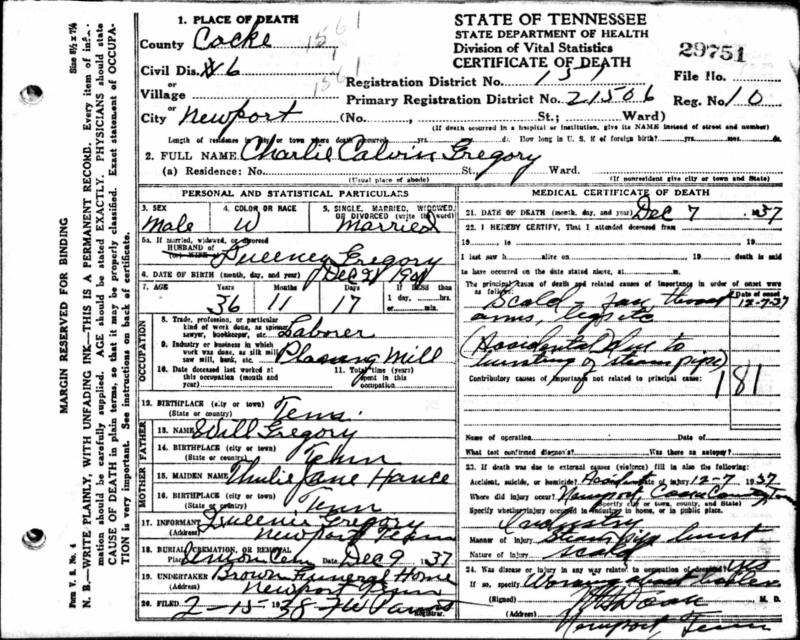 1. PLACE OF DEATH
County Cocke 1561
Civil Dis. # 6 1561
Village
City Newport (No. , St.; Ward)
STATE OF TENNESSEE
STATE DEPARTMENT OF HEALTH
Division of Vital Statistics
CERTIFICATE OF DEATH
29751
Registration District No. 151 File No.
Primary Registration District No. 21506 Reg. No. 10
(If death occurred in a hospital or institution, give its NAME instead of street and number)
Length of residence in city or town where death occurred yrs. mos. ds. How long in U. S. if of foreign birth? yrs. mos. ds.
2. FULL NAME Charlie Calvin Gregory
(a) Residence: No. St., Ward.
(Usual place of abode) (If nonresident give city or town and State)
PERSONAL AND STATISTICAL PARTICULARS
3. SEX Male
4. COLOR OR RACE W
5. SINGLE, MARRIED, WIDOWED, OR DIVORCED (write the word) Married
5a. If married, widowed, or divorced
HUSBAND of
(or) WIFE of Gregory
6. DATE OF BIRTH (month, day, and year) Dec
7. AGE Years 36 Months 11 Days 17 If LESS than 1 day, hrs. or min.
OCCUPATION
8. Trade, profession, or particular kind of work done, as spinner, sawyer, bookkeeper, etc. Laborer
9. Industry or business in which work was done, as silk mill, saw mill, bank, etc. Mill
10. Date deceased last worked at this occupation (month and year)
11. Total time (years) spent in this occupation
12. BIRTHPLACE (city or town)
(State or country) Tenn.
FATHER
13. NAME Will Gregory
14. BIRTHPLACE (city or town)
(State or country) Tenn
MOTHER
15. MAIDEN NAME Jane Hance
16. BIRTHPLACE (city or town)
(State or country) Tenn
17. INFORMANT Gregory
(Address) Newport Tenn
18. BURIAL, CREMATION, OR REMOVAL
Place Cem Date Dec 9 1937
19. UNDERTAKER Brown Funeral Home
Newport Tenn
20. FILED 2-15 1938
Registrar.
MEDICAL CERTIFICATE OF DEATH
21. DATE OF DEATH (month, day, and year) Dec 7 1937
22. I HEREBY CERTIFY, That I attended deceased from
19 to 19
I last saw h alive on 19 death is said
to have occurred on the date stated above, at m.
The principal cause of death and related causes of importance in order of onset were as follows: Date of onset
Scald - face throat 12-7-37
arms, legs etc
(Accidental) due to
bursting of steam pipe)
Contributory causes of importance not related to principal cause:
181
Name of operation Date of
What test confirmed diagnosis? Was there an autopsy?
23. If death was due to external causes (violence) fill in also the following:
Accident, suicide, or homicide? Accident Date of injury 12-7 1937
Where did injury occur? Newport, Cocke County Tenn
(Specify city or town, county, and State)
Specify whether injury occurred in industry, in home, or in public place.
Industry
Manner of injury Steam pipe burst
Nature of injury Scald
24. Was disease or injury in any way related to occupation of deceased? yes
If so, specify Working about boiler
(Signed) M. D.
(Address) Newport Tenn
MARGIN RESERVED FOR BINDING
Form V. S. No. 4 Size 8½ x 7¼
N. B.—WRITE PLAINLY, WITH UNFADING INK—THIS IS A PERMANENT RECORD. Every item of information should be carefully supplied. AGE should be stated EXACTLY. PHYSICIANS should state CAUSE OF DEATH in plain terms, so that it may be properly classified. Exact statement of OCCUPATION is very important. See instructions on back of certificate.